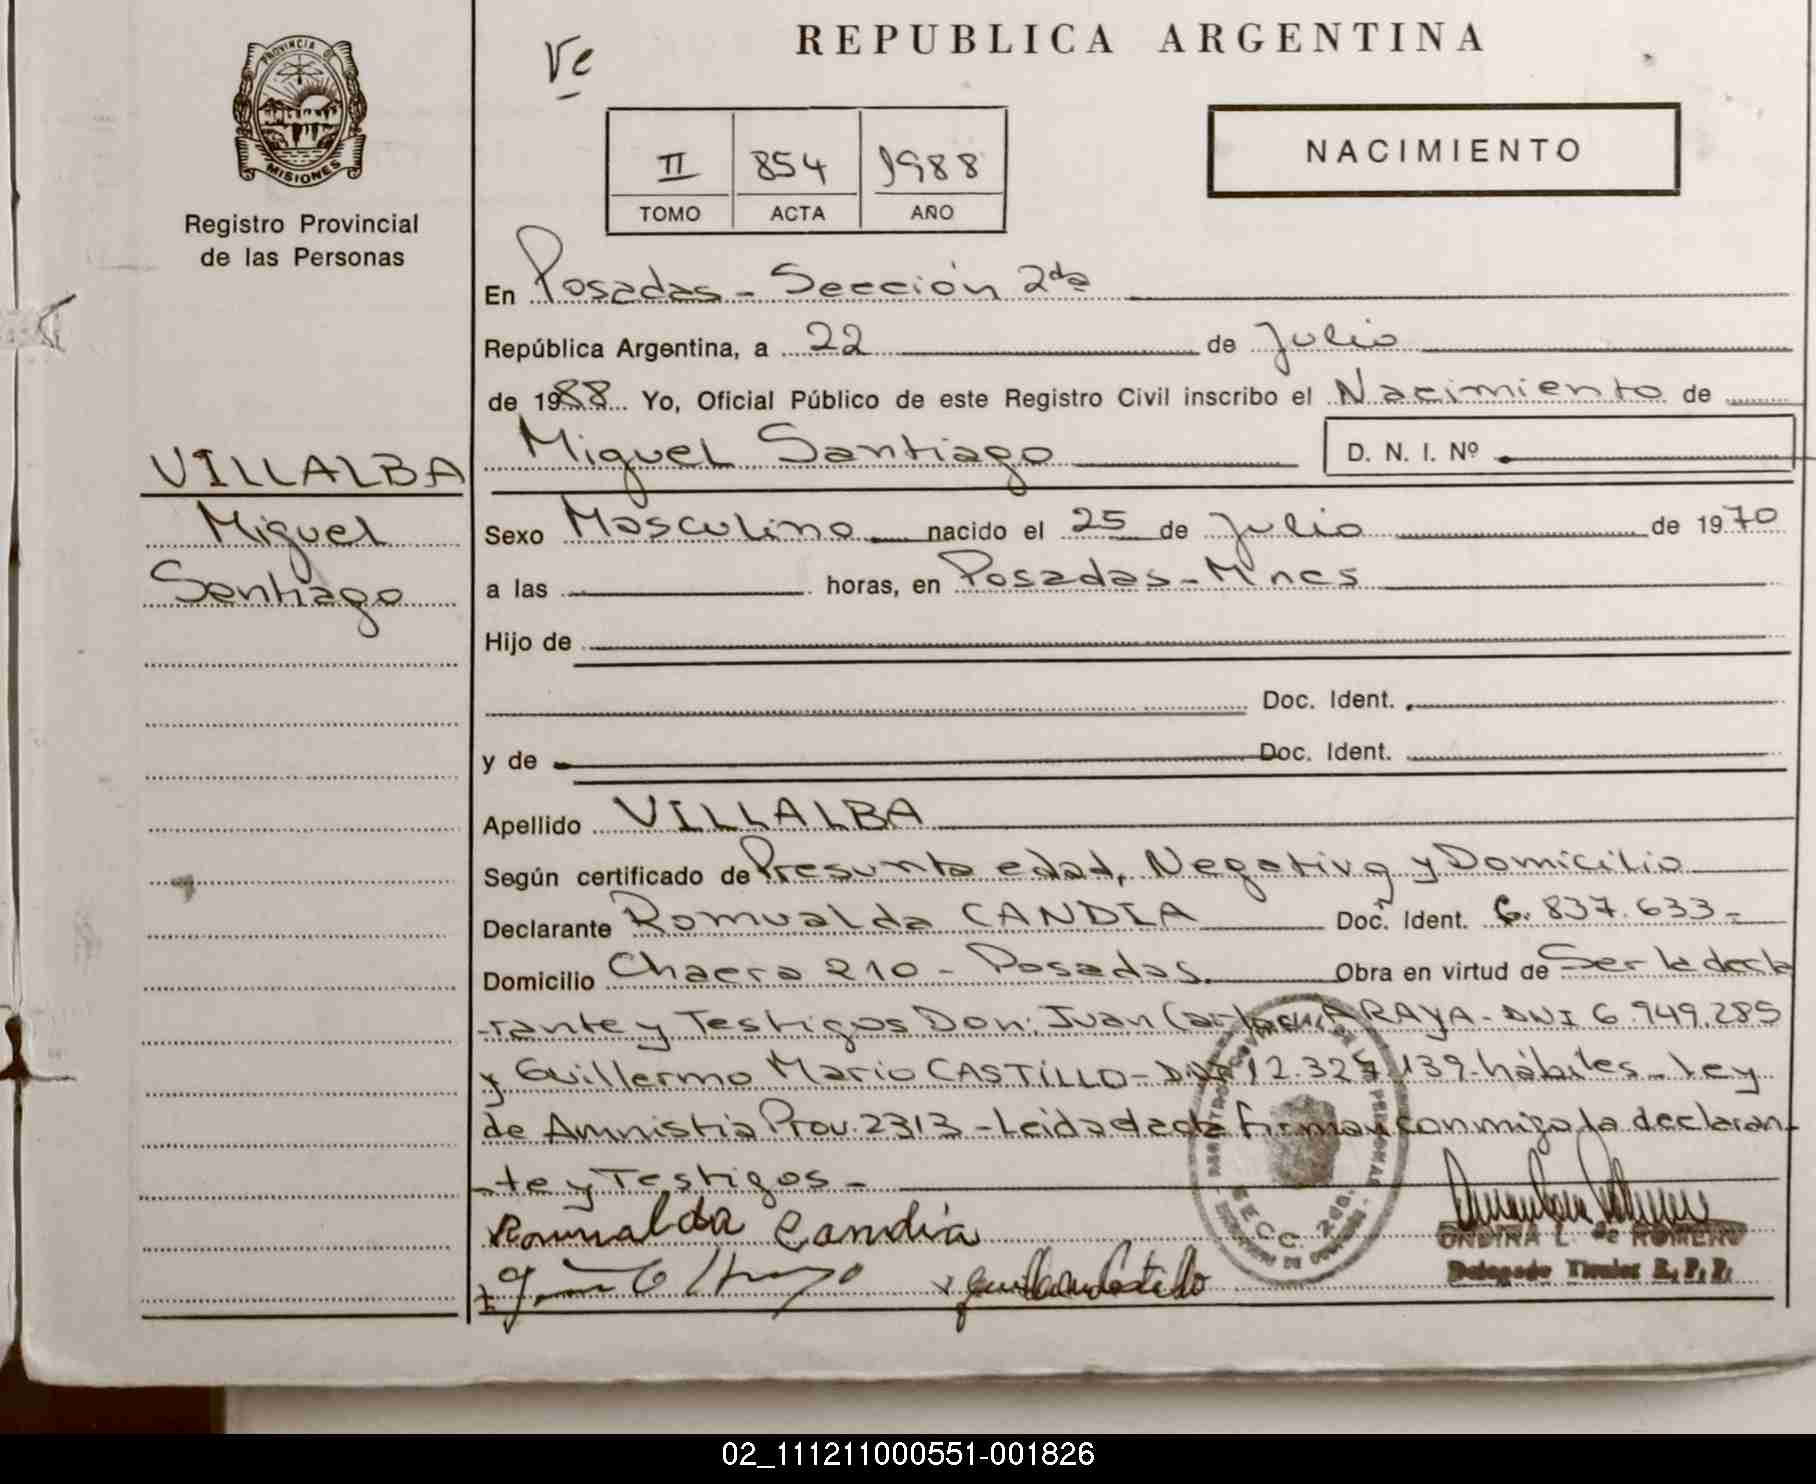 REPUBLICA ARGENTINA
Ve
PROVINCIA DE
MISIONES
Registro Provincial
de las Personas
NACIMIENTO
II 854 1988
TOMO ACTA AÑO
En Posadas - Sección 2da
República Argentina, a 22 de Julio
de 1988 Yo, Oficial Público de este Registro Civil inscribo el Nacimiento de
Miguel Santiago D. N. I. Nº
VILLALBA
Miguel
Santiago
Sexo Masculino nacido el 25 de Julio de 1970
a las horas, en Posadas - Mnes
Hijo de
Doc. Ident.
y de Doc. Ident.
Apellido VILLALBA
Según certificado de Presunta edad, Negativo y Domicilio
Declarante Romualda CANDIA Doc. Ident. 6.837.633-
Domicilio Chacra 210 - Posadas. Obra en virtud de Ser la decla
-rante y Testigos Don: Juan Carlos ARAYA - DNI 6.949.285
y Guillermo Mario CASTILLO - DNI 12.327.139- hábiles - Ley
de Amnistia Prov. 2313 - Leida el acta firman conmigo la declaran-
-te y Testigos -
Romualda Candia
Guillermo Castillo
SECC. 2da.
ONDINA L. de ROMERO
Delegado Titular R. P. P.
02_111211000551-001826